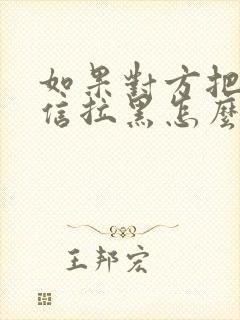 如果對方把
信拉黑怎麼
王邦宏